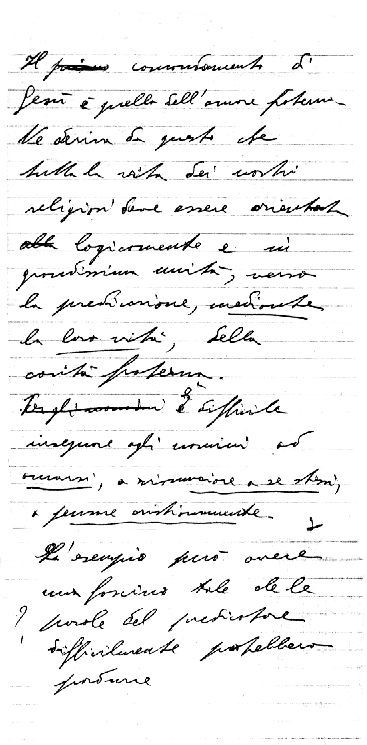 Il primo comandamento di
Gesù è quello dell'amore fraterno.
Ne deriva da questo che
tutta la vita dei nostri
religiosi deve essere orientata
alla logicamente e in
grandissima unità, verso
la predicazione, mediante
la loro vita, della
carità fraterna.
È difficile
insegnare agli uomini ad
amarsi, a rinunciare a se stessi,
a pensare cristianamente.
L'esempio può avere
un fascino tale che le
? parole del predicatore
difficilmente potrebbero
produrre